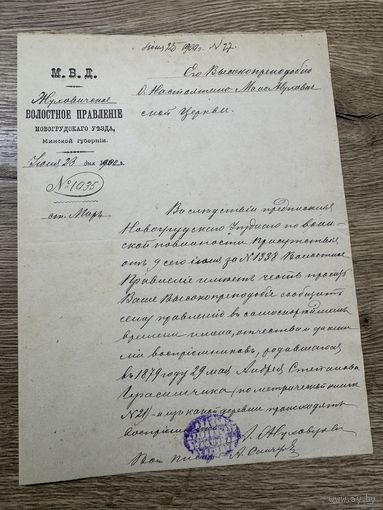 Іюня 25 1900 г. N 27
М. В. Д.
Жуховичское
ВОЛОСТНОЕ ПРАВЛЕНІЕ
НОВОГРУДСКАГО УѢЗДА,
Минской губерніи.
Іюня 23 дня 1900 г.
№ 1035
ст. Миръ
Его Высокопреподобію
О. Настоятелю Мало-Жухович
ской Церкви.
Вслѣдствіи предписанія
Новогрудскаго Уѣзднаго по воин
ской повинности Присутствія
отъ 9 сего Іюня за № 1338 Волостное
Правленіе имѣетъ честь просить
Ваше Высокопреподобіе сообщить
сему правленію въ самоскорѣйшемъ
времени имена, отчества и фами
ліи воспріемниковъ, родившагося
въ 1879 году 29 мая Андрея Степанова
Герасимчика (по метрической книгѣ
№ 21) и изъ какой деревни происходятъ
воспріемники.
Вол. Писарь